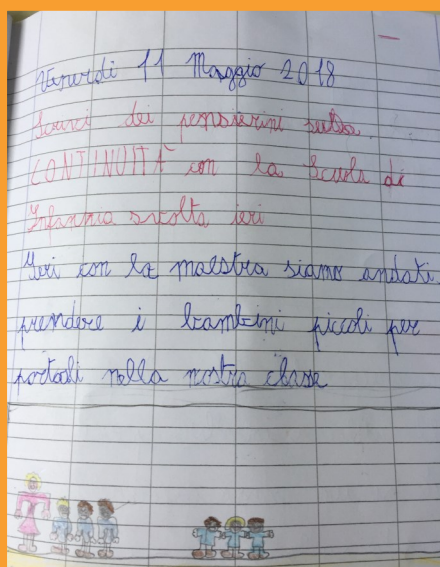 Venerdi 11 Maggio 2018
Scrivi dei pensierini sulla
CONTINUITÀ con la Scuola di
Infanzia svolta ieri
Ieri con la maestra siamo andati
prendere i bambini piccoli per
portali nella nostra classe